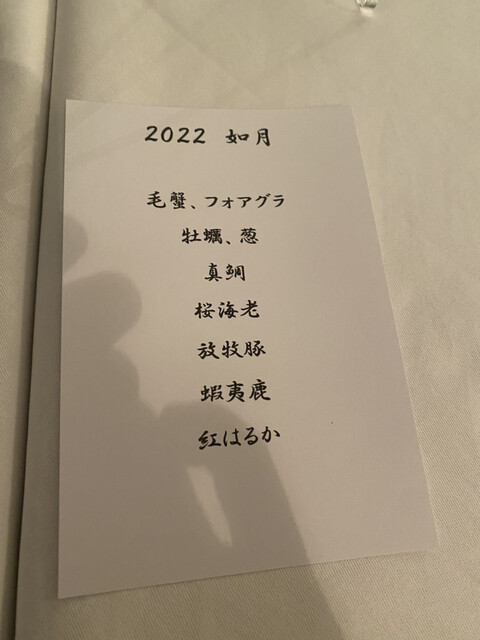 2022 如月
毛蟹、フォアグラ
牡蠣、葱
真鯛
桜海老
放牧豚
蝦夷鹿
紅はるか